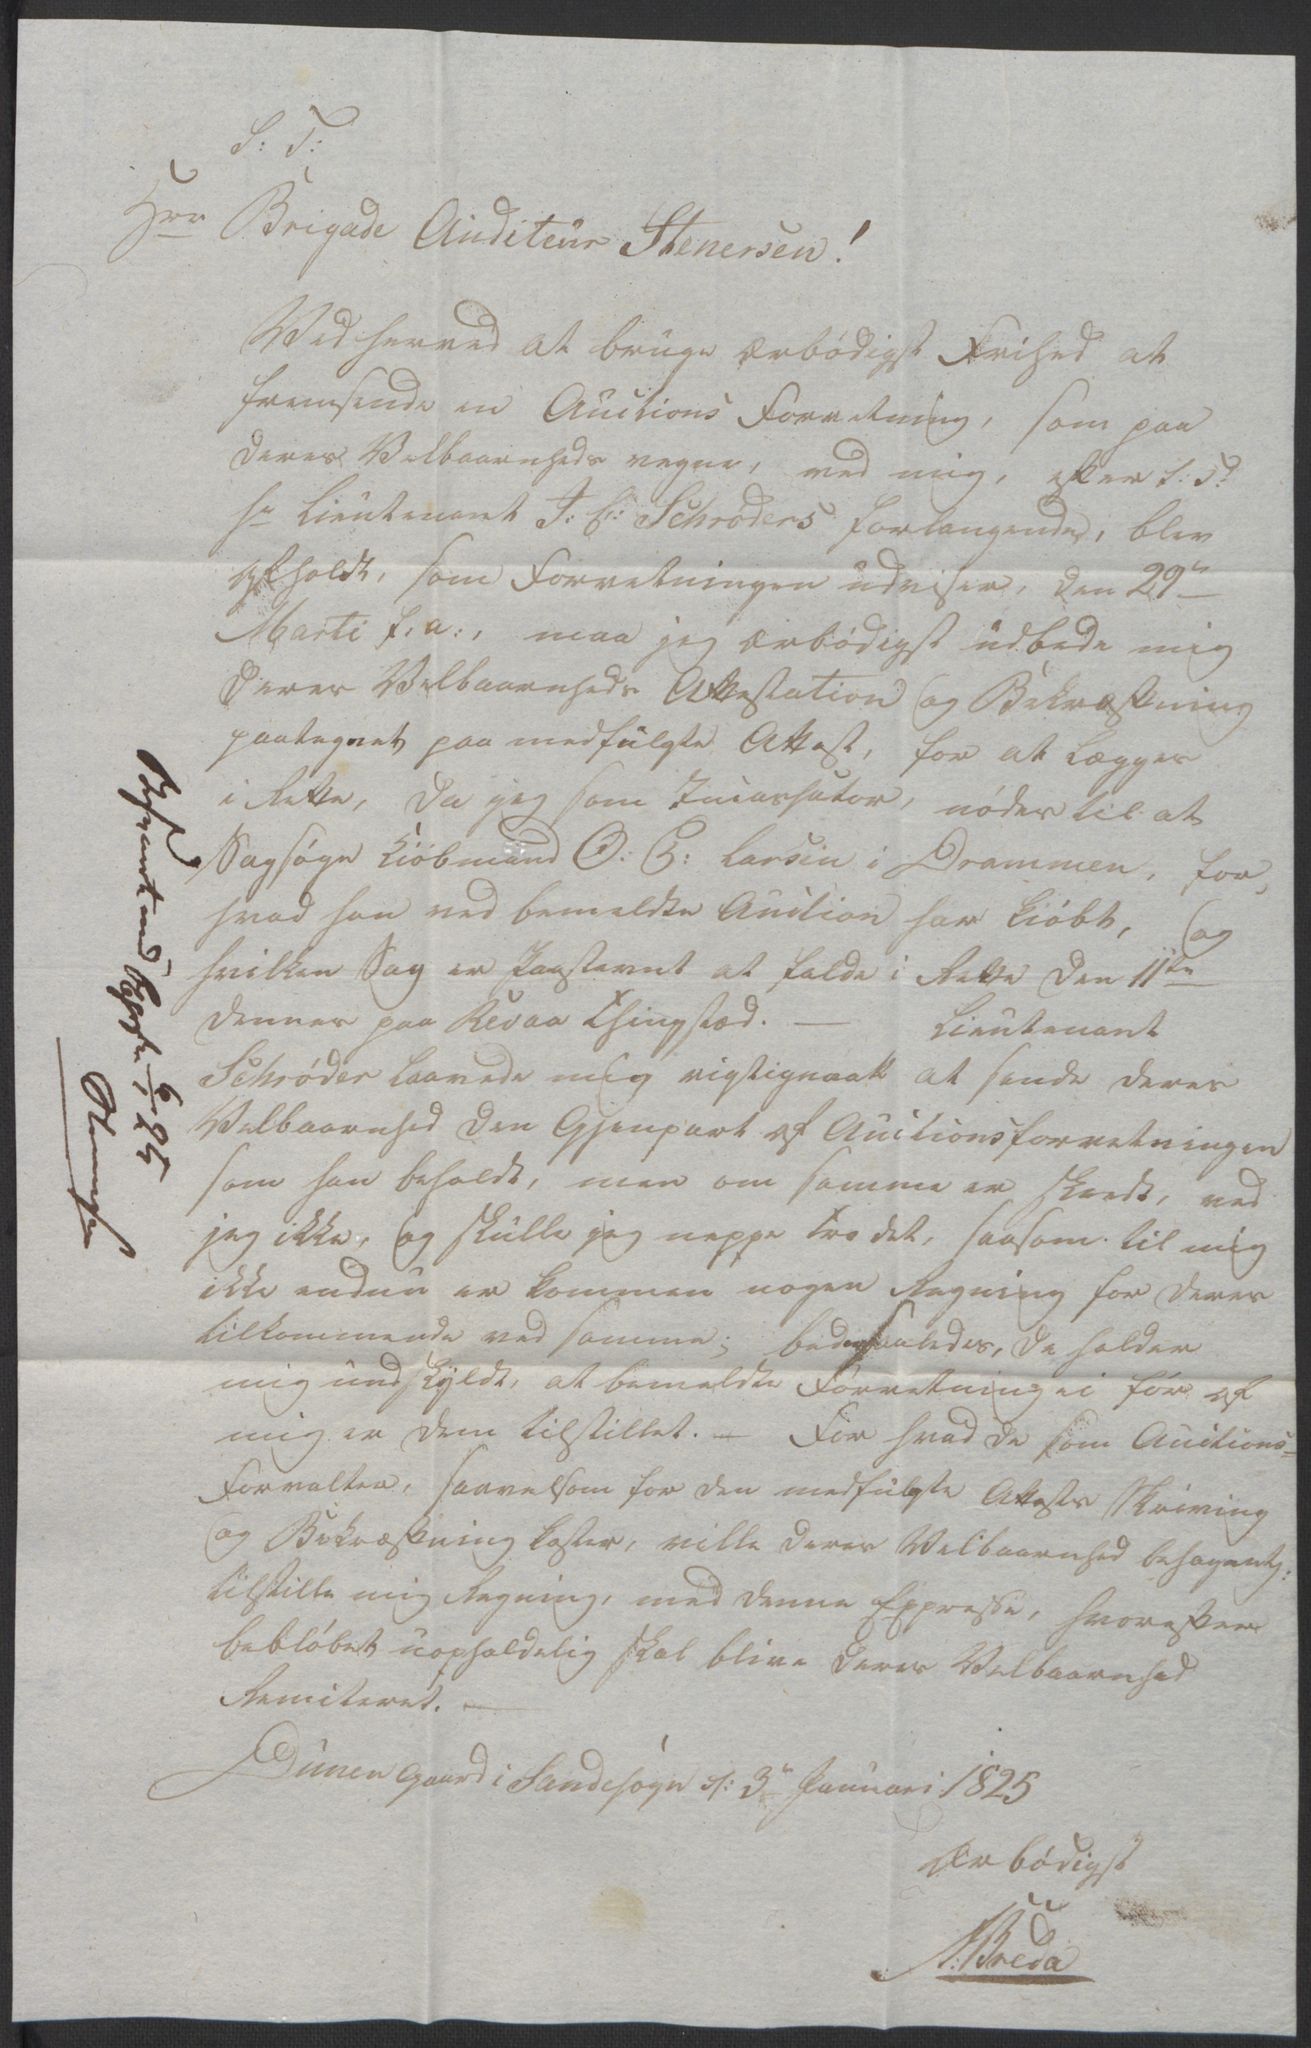 S: T:
Herr Brigade Auditeur Stenersen!
Ved herved at bruge ærbødigst Frihed at
fremsende en Auctions Forretning, som paa
Deres Velbaarnheds vegne, ved mig, efter S: T:
Hr Lieutenant J: C: Schrøders forlangende, blev
afholdt, som Forretningen udviser, den 29de
Marti f. a:, maa jeg ærbødigst udbede mig
Deres Velbaarnheds Attestation og Bekræftning
paategnet paa medfulgte Attest, for at lægges
i Rette, da jeg som Incassator, nødes til at
Sagsøge Kiøbmand O: C: Larsen i Drammen, for,
hvad han ved bemeldte Auction har kiøbt, og
hvilken Sag er Indstevnt at falde i Rette den 11te
dennes paa Revaa Thingstæd. — Lieutenant
Schrøder laavede mig rigtignok at sende Deres
Velbaarnhed den Gjenpart af Auctionsforretningen
som han beholdt, men om samme er skeedt, ved
jeg ikke, og skulle jeg neppe troe det, saasom til mig
ikke endnu er kommen nogen Regning for Deres
tilkommende ved samme; beder saaledes, De holder
mig undskyldt, at bemeldte Forretning ei før af
mig er Dem tilstillet. — For hvad De som Auctions-
Forvalter, saavelsom for den medfulgte Attests Skriving
og Bekræftning koster, ville Deres Velbaarnhed behagentl:
tilstille mig Regning, med denne Expresse, hvorefter
beløbet uopholdelig skal blive Deres Velbaarnhed
Remiteret. —
Dunen Gaard i Sandesogn d: 3de Januari 1825
Ærbødigst
Breda
Besvaret med 6/1 25
Stenersen